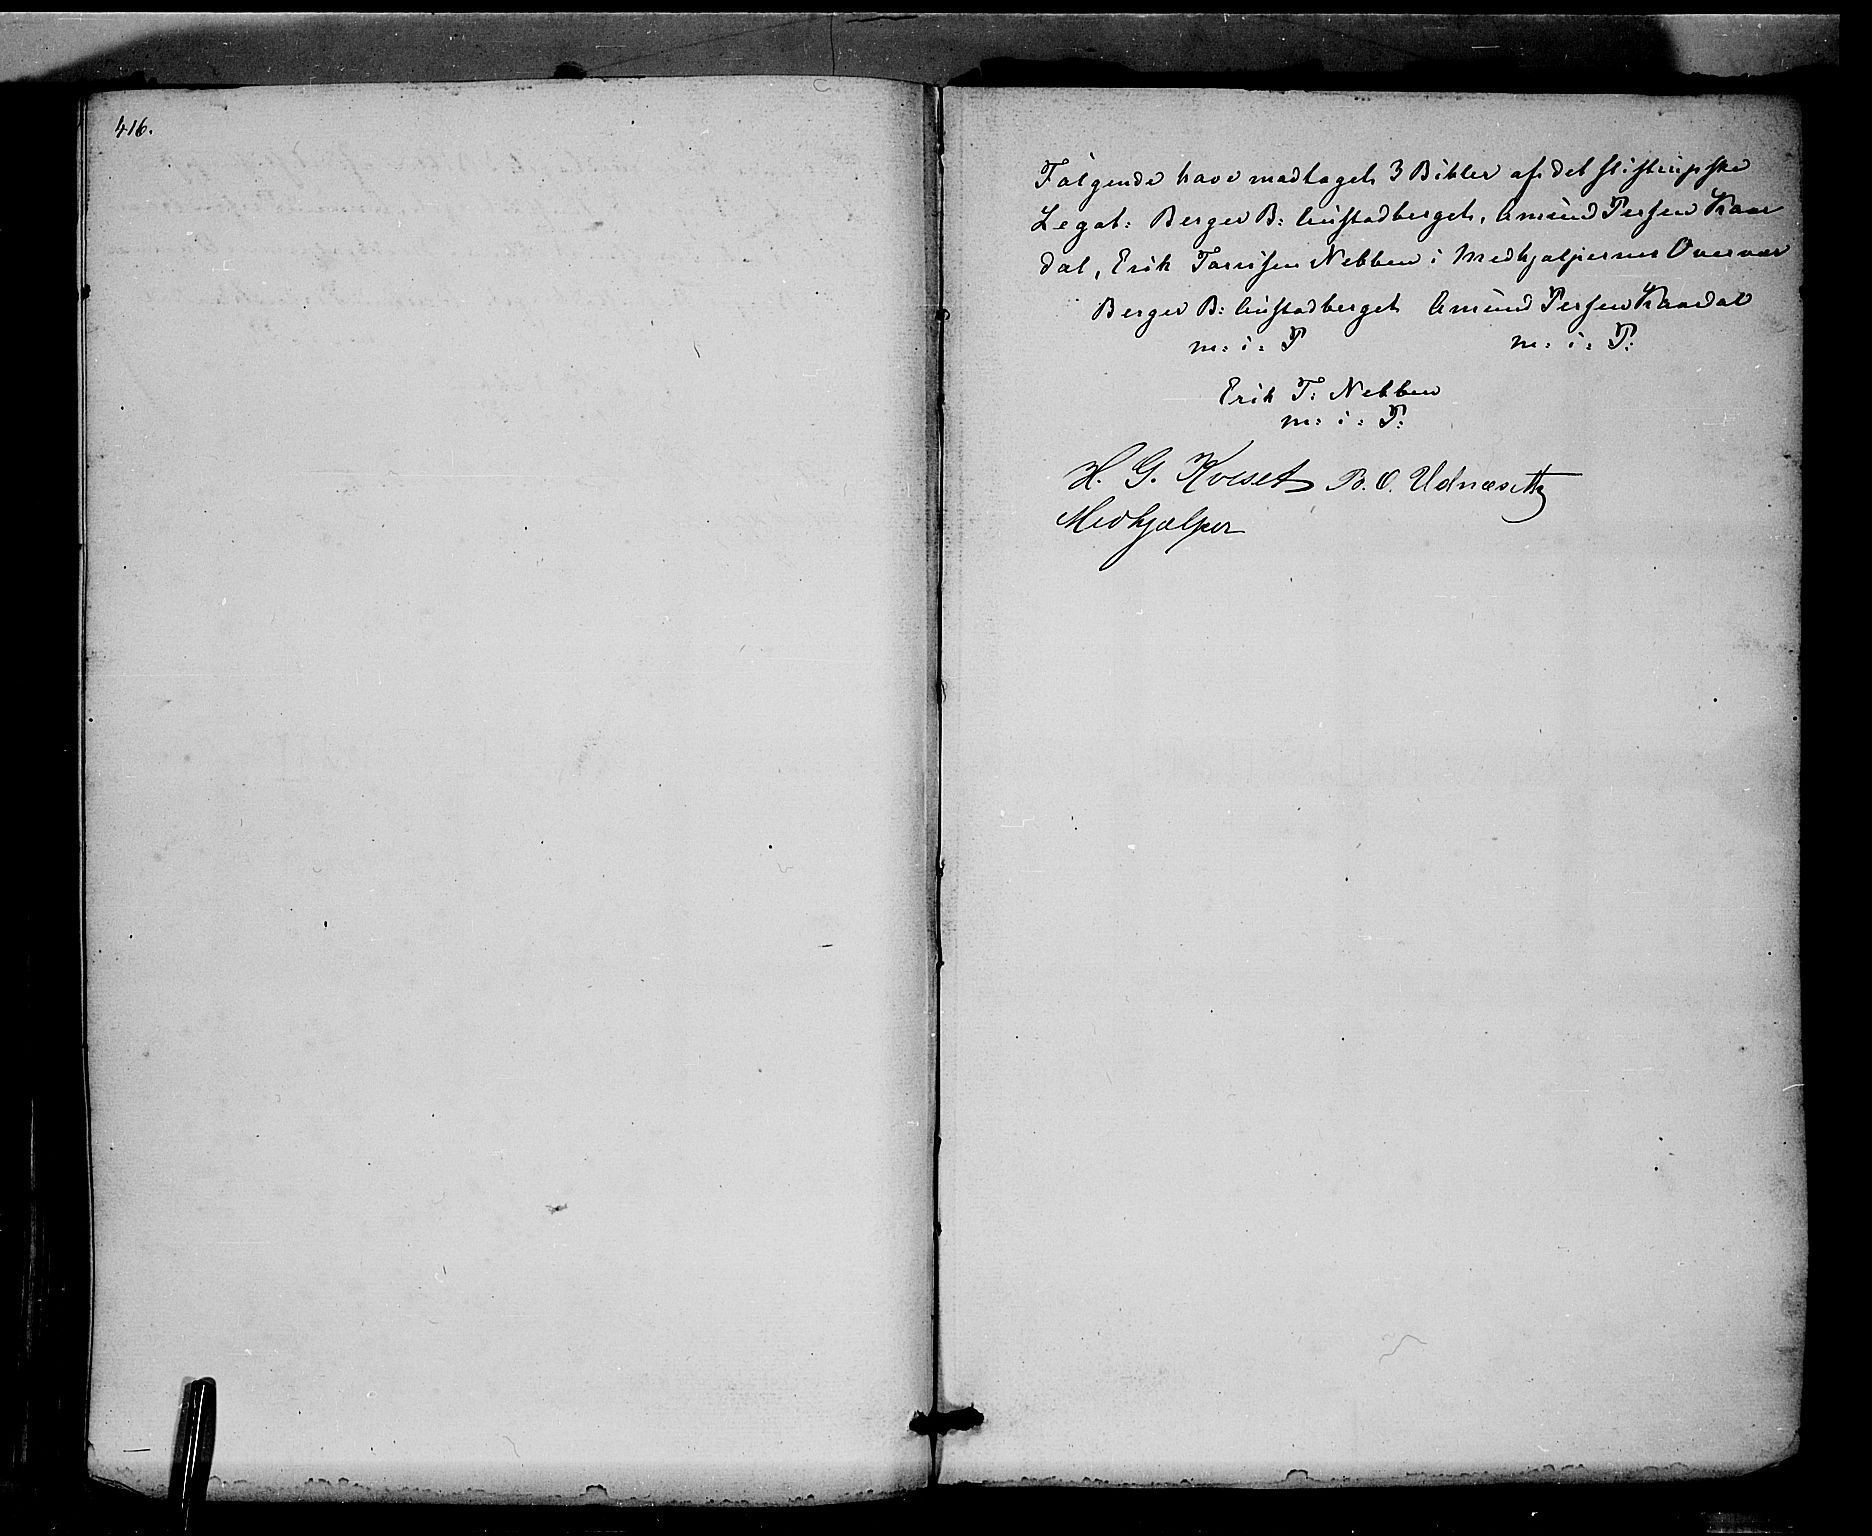 416.
Følgende have modtaget 3 Bibler af det Stistrupske
Legat: Berger B: Austadberget, Amund Persen Kaar
dal, Erik Tarrisen Nebben i Medhjælpernes Overvær
Berger B: Austadberget Amund Persen Kaardal
m: i: P m: i: P:
Erik T: Nebben
m: i: P:
H. G. Kveset B. O. Udnæseth
Medhjælper